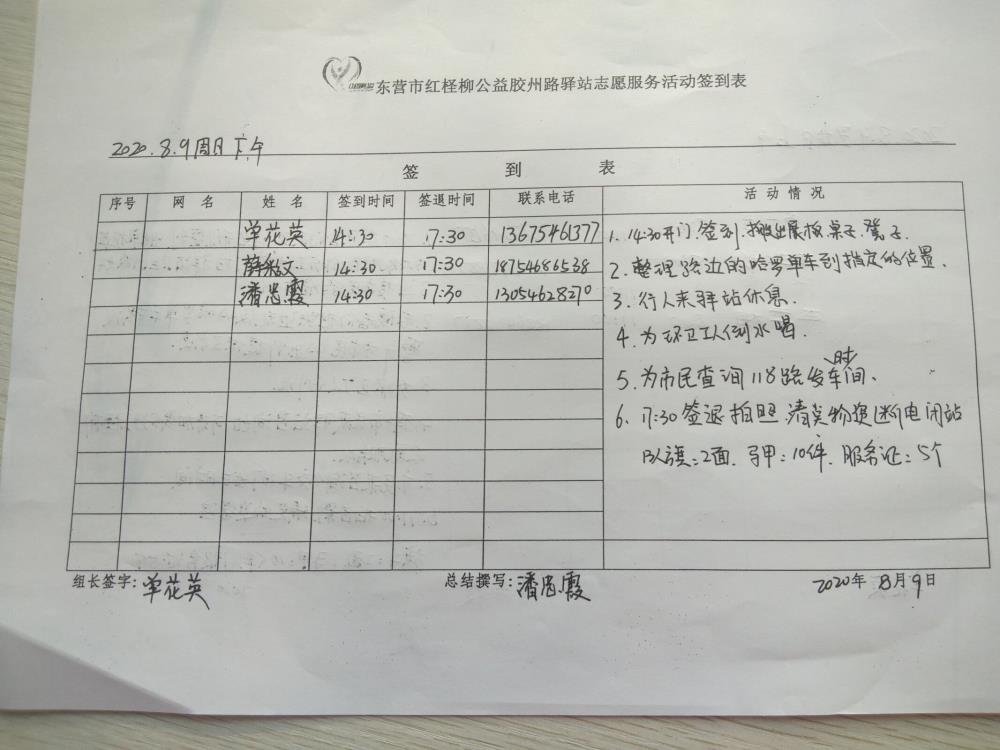 东营市红柽柳公益胶州路驿站志愿服务活动签到表
2020.8.9周日下午
签 到 表
序号 网 名 姓 名 签到时间 签退时间 联系电话 活动情况
单花英 14:30 17:30 13675461377
薛秋文 14:30 17:30 18754686538
潘忠霞 14:30 17:30 13054628270
1. 14:30开门.签到.搬出展板.桌子.凳子.
2. 整理路边的哈罗单车到指定的位置.
3. 行人来驿站休息.
4. 为环卫工人倒水喝.
5. 为市民查询118路发车时间.
6. 17:30签退拍照.清点物资.断电闭站
队旗:2面. 马甲:10件. 服务证:5个
组长签字:单花英 总结撰写:潘忠霞 2020年 8月9日